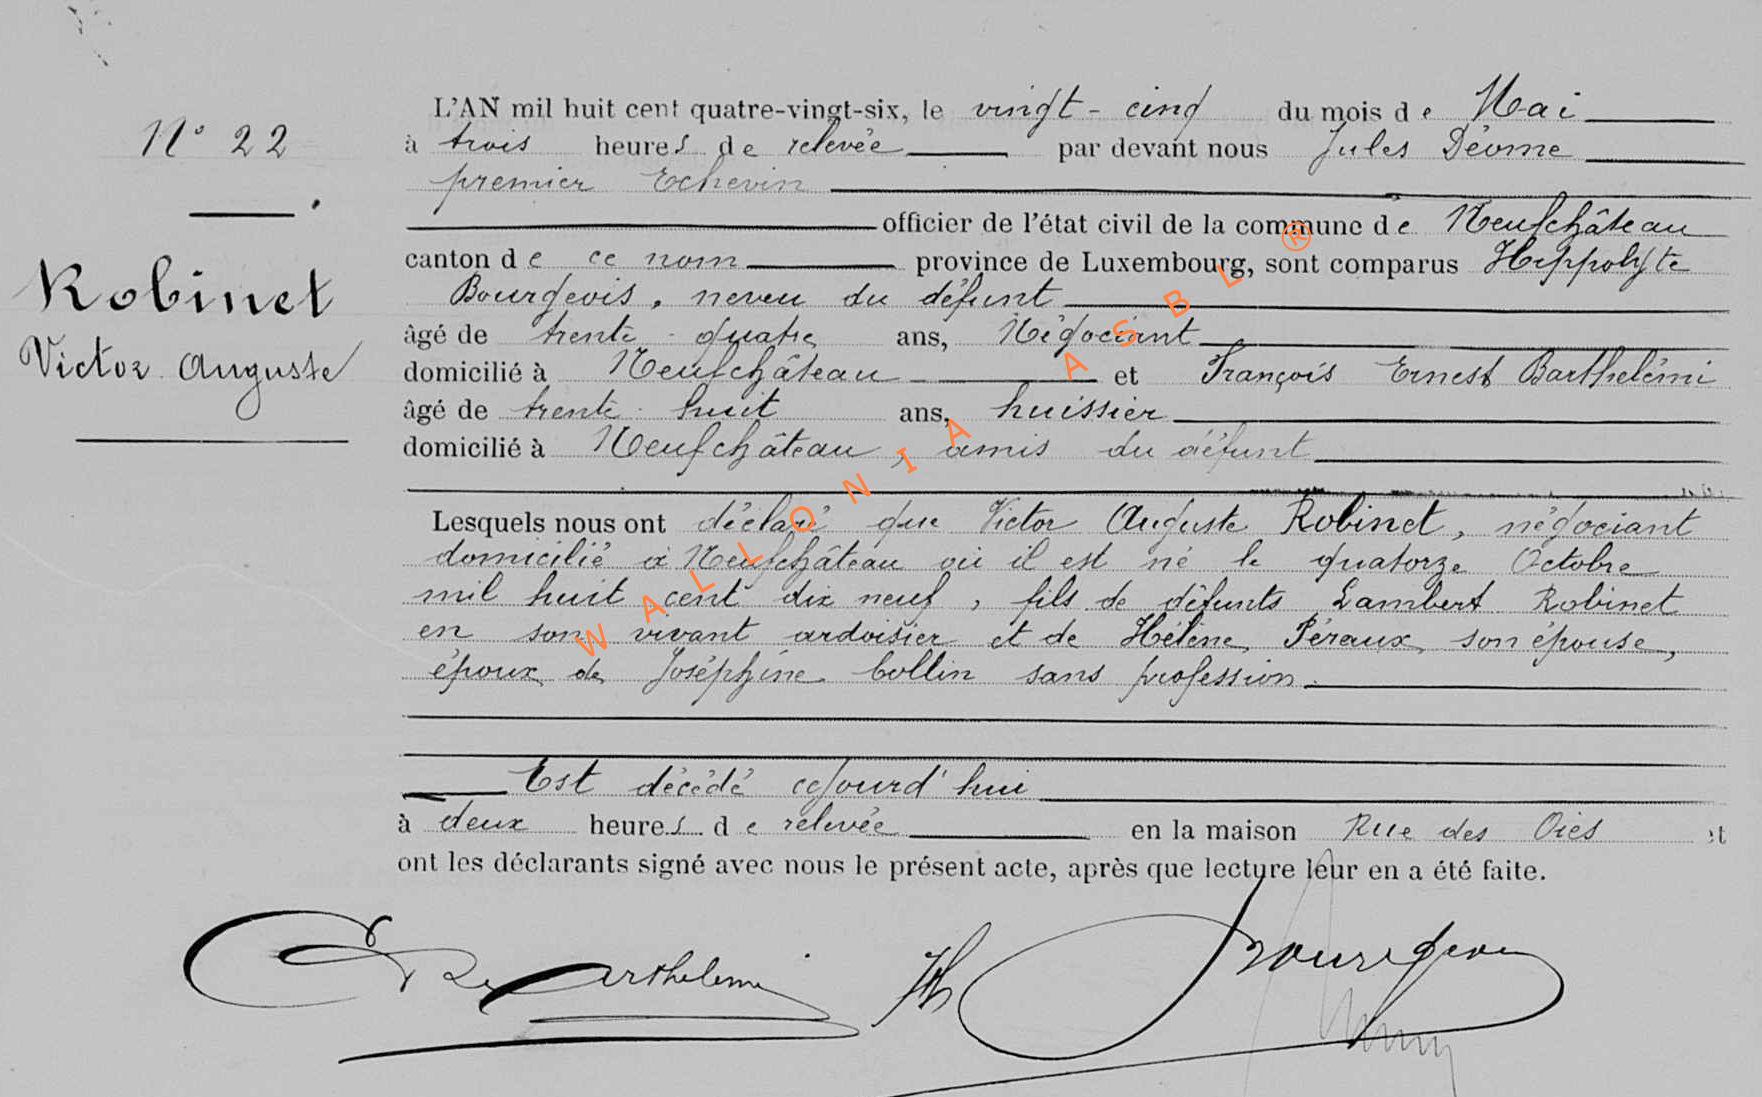 N° 22
Robinet
Victor Auguste
L'AN mil huit cent quatre-vingt-six, le vingt-cinq du mois de Mai
à trois heures de relevée par devant nous Jules Déome
premier Echevin
officier de l'état civil de la commune de Neufchâteau
canton de ce nom province de Luxembourg, sont comparus Hippolyte
Bourgeois, neveu du défunt
âgé de trente-quatre ans, Négociant
domicilié à Neufchâteau et François Ernest Barthelémi
âgé de trente-huit ans, huissier
domicilié à Neufchâteau, amis du défunt
Lesquels nous ont déclaré que Victor Auguste Robinet, négociant
domicilié à Neufchâteau où il est né le quatorze Octobre
mil huit cent dix neuf, fils de défunts Lambert Robinet
en son vivant ardoisier et de Hélène Péraux son épouse,
époux de Joséphine Collin sans profession.
Est décédé cejourd'hui
à deux heures de relevée en la maison Rue des Oies et
ont les déclarants signé avec nous le présent acte, après que lecture leur en a été faite.
Barthelemi Hte Bourgeois
WALLONIA ASBL ®